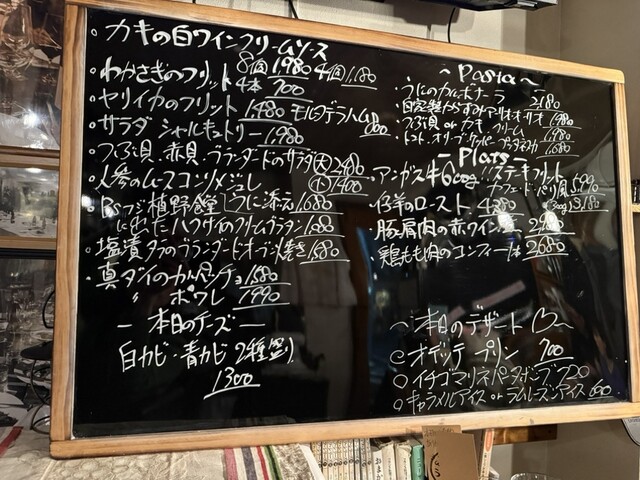 ・カキの白ワインクリームソース
8個1980 4個1,180
・わかさぎのフリット 4本 700
・ヤリイカのフリット 1480 モルタデラハム
・サラダシャルキュトリー 1,980
・つぶ貝、赤貝、ブランダードのサラダ 大 2480
・人参のムースコンソメジュレ 小 1400
うに添え 1,680
ハクサイのクリームグラタン 1,580
・塩漬タラのブランダードオーブン焼き 1,580
・真ダイのカルパッチョ 1,580
〃 ポワレ 1990
— 本日のチーズ —
白カビ・青カビ 2種盛り
1300
~ Pasta ~
・うにのカルボナーラ 2180
・自家製からすみアーリオオーリオ 1,980
・つぶ貝 or カキ クリーム 1,980
・トマト オリーブ ケイパー プッタネスカ 1,680
— Plats —
・アンガス牛600g!!ステキフリット
カフェ・ド・パリ風
・仔羊のロースト 4380
・豚肩肉の赤ワイン煮 2480
・鶏もも肉のコンフィ 2680
~本日のデザート ♡~
オデッテ プリン 700
○イチゴマリネ パンナコッタ 700
○キャラメルアイス or ラムレーズンアイス 600